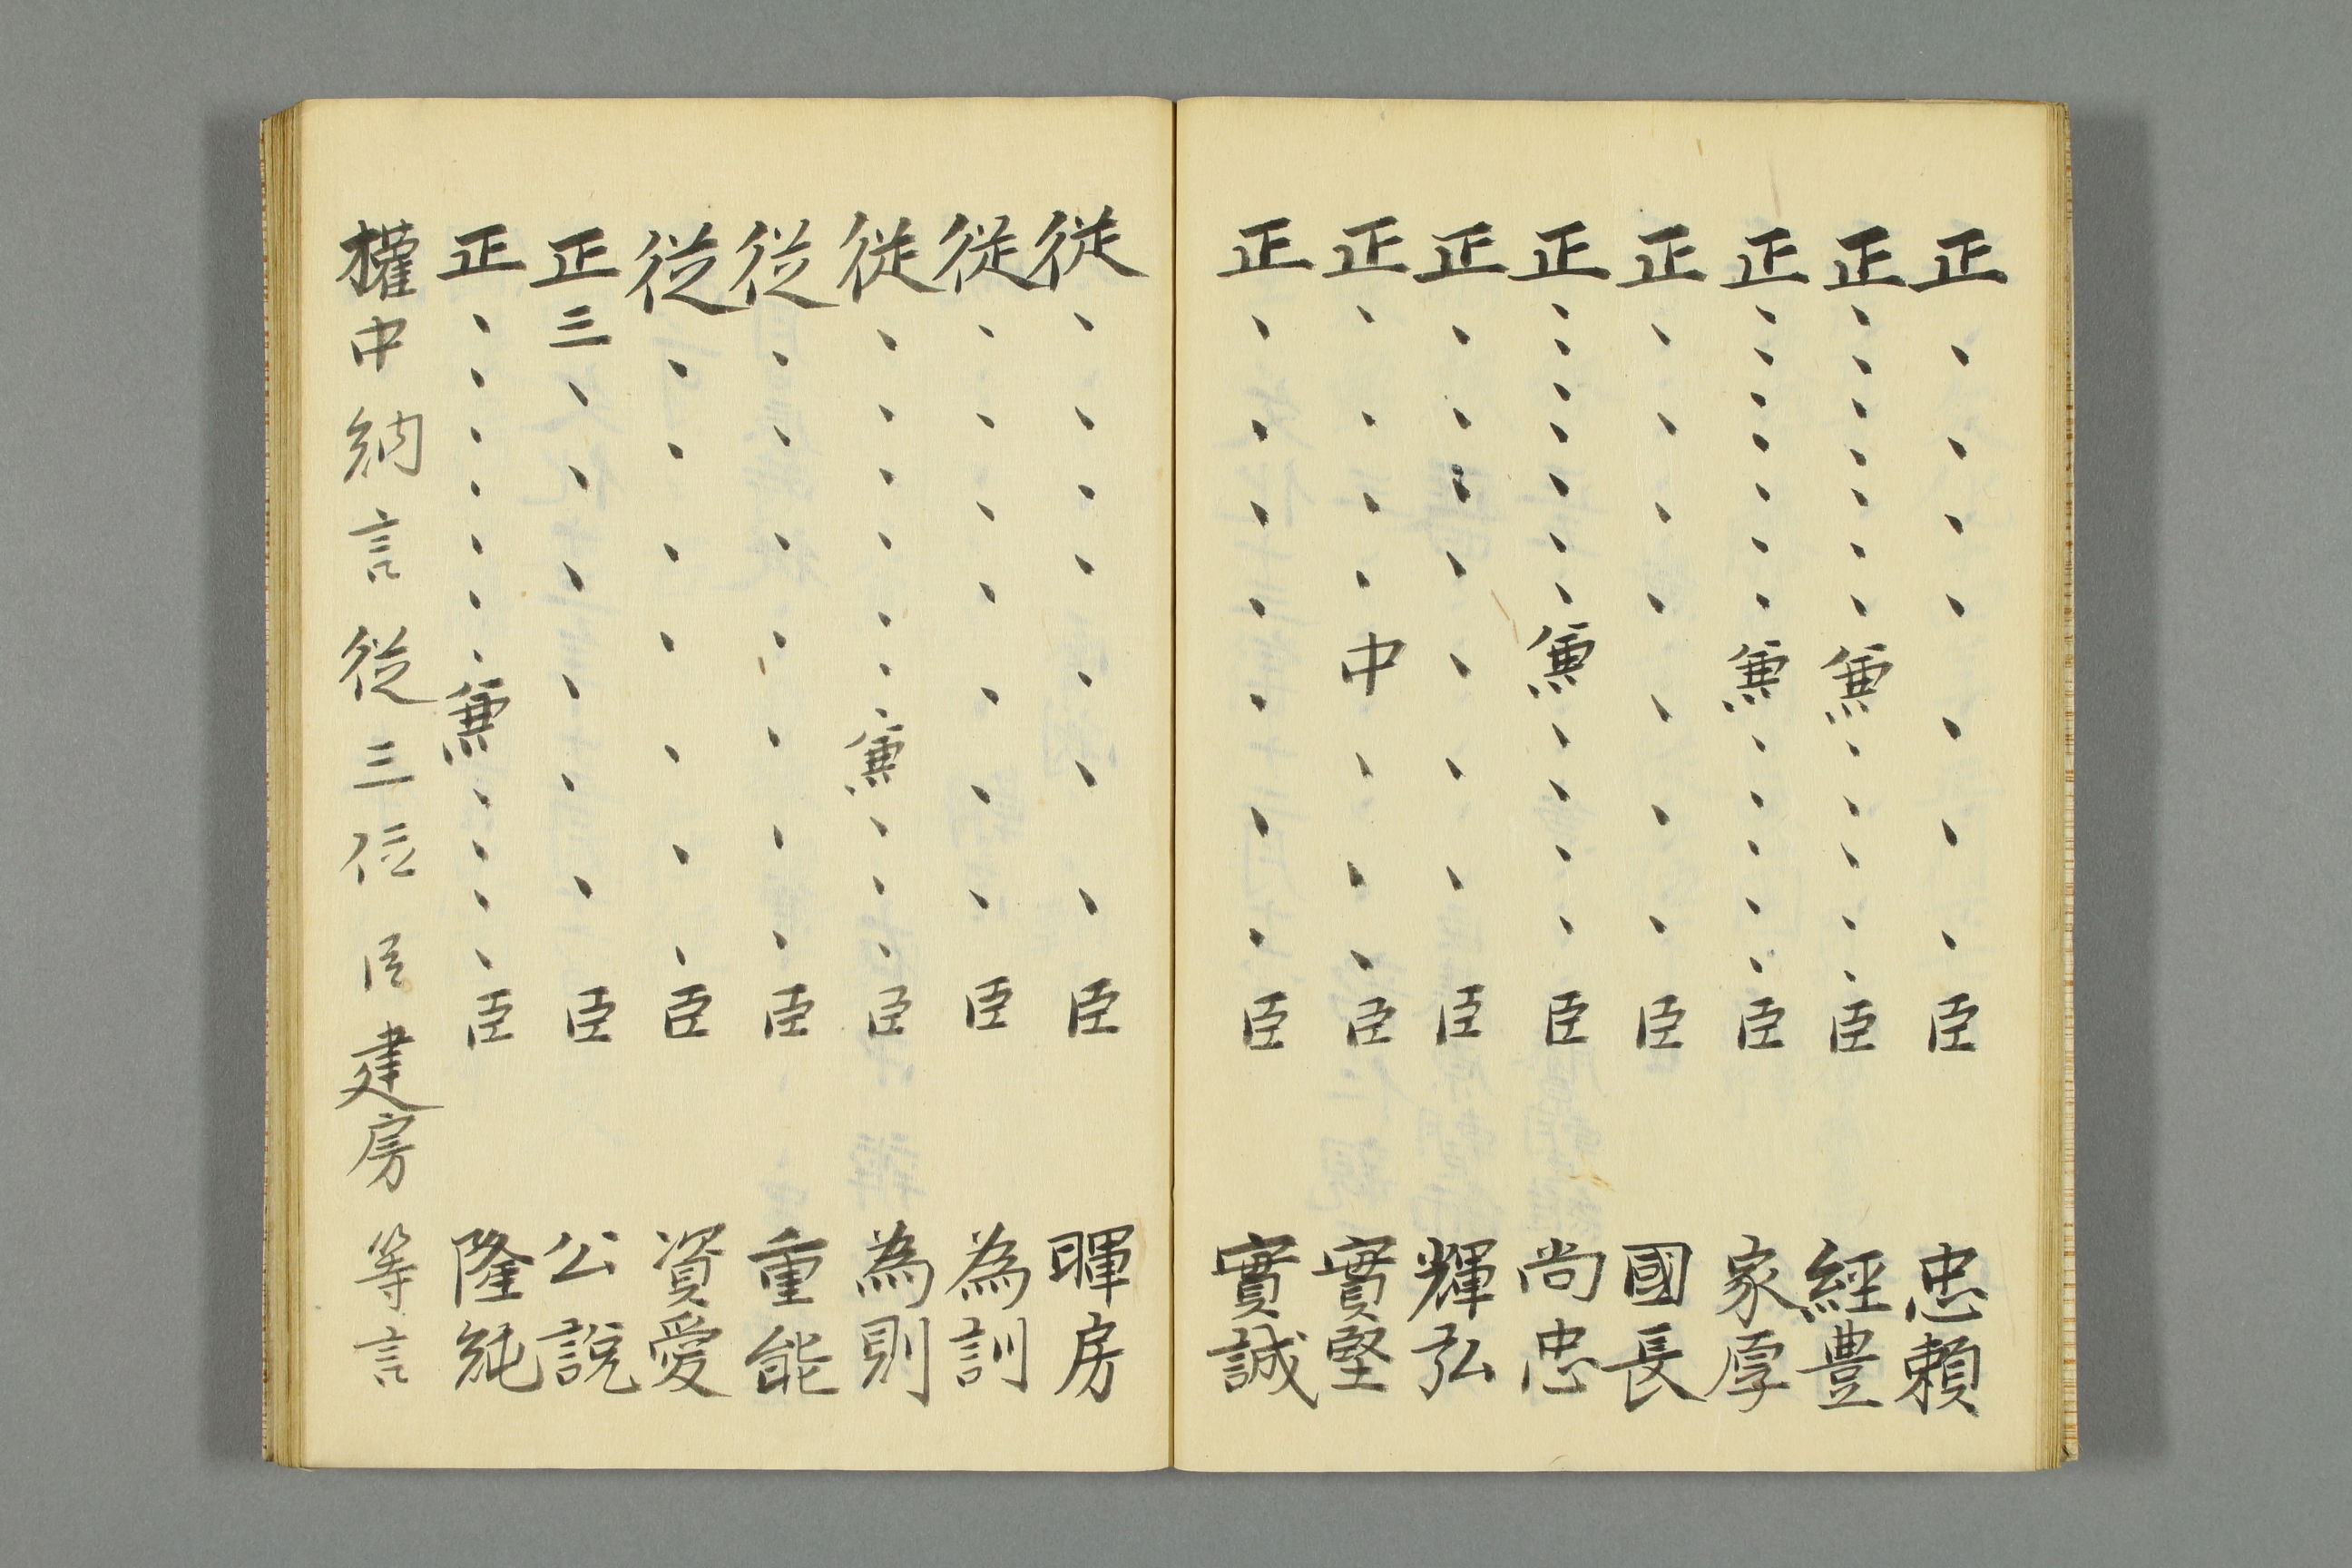 正、、、、、、、臣 忠頼
正、、、、、、、兼、、、、、臣 經豊
正、、、、、、、兼、、、、、臣 家厚
正、、、、、、、臣 國長
正、、、、、、、兼、、、、臣 尚忠
正、、、、、、、臣 輝弘
正、、、、中、、、臣 實堅
正、、、、、、、臣 實誠
従、、、、、、、臣 暉房
従、、、、、、、臣 為訓
従、、、、、、、兼、、、臣 為則
従、、、、、、、臣 重能
従、、、、、、、臣 資愛
正三、、、、、、臣 公説
正、、、、、、、兼、、、、臣 隆純
權中納言従三位臣建房等言